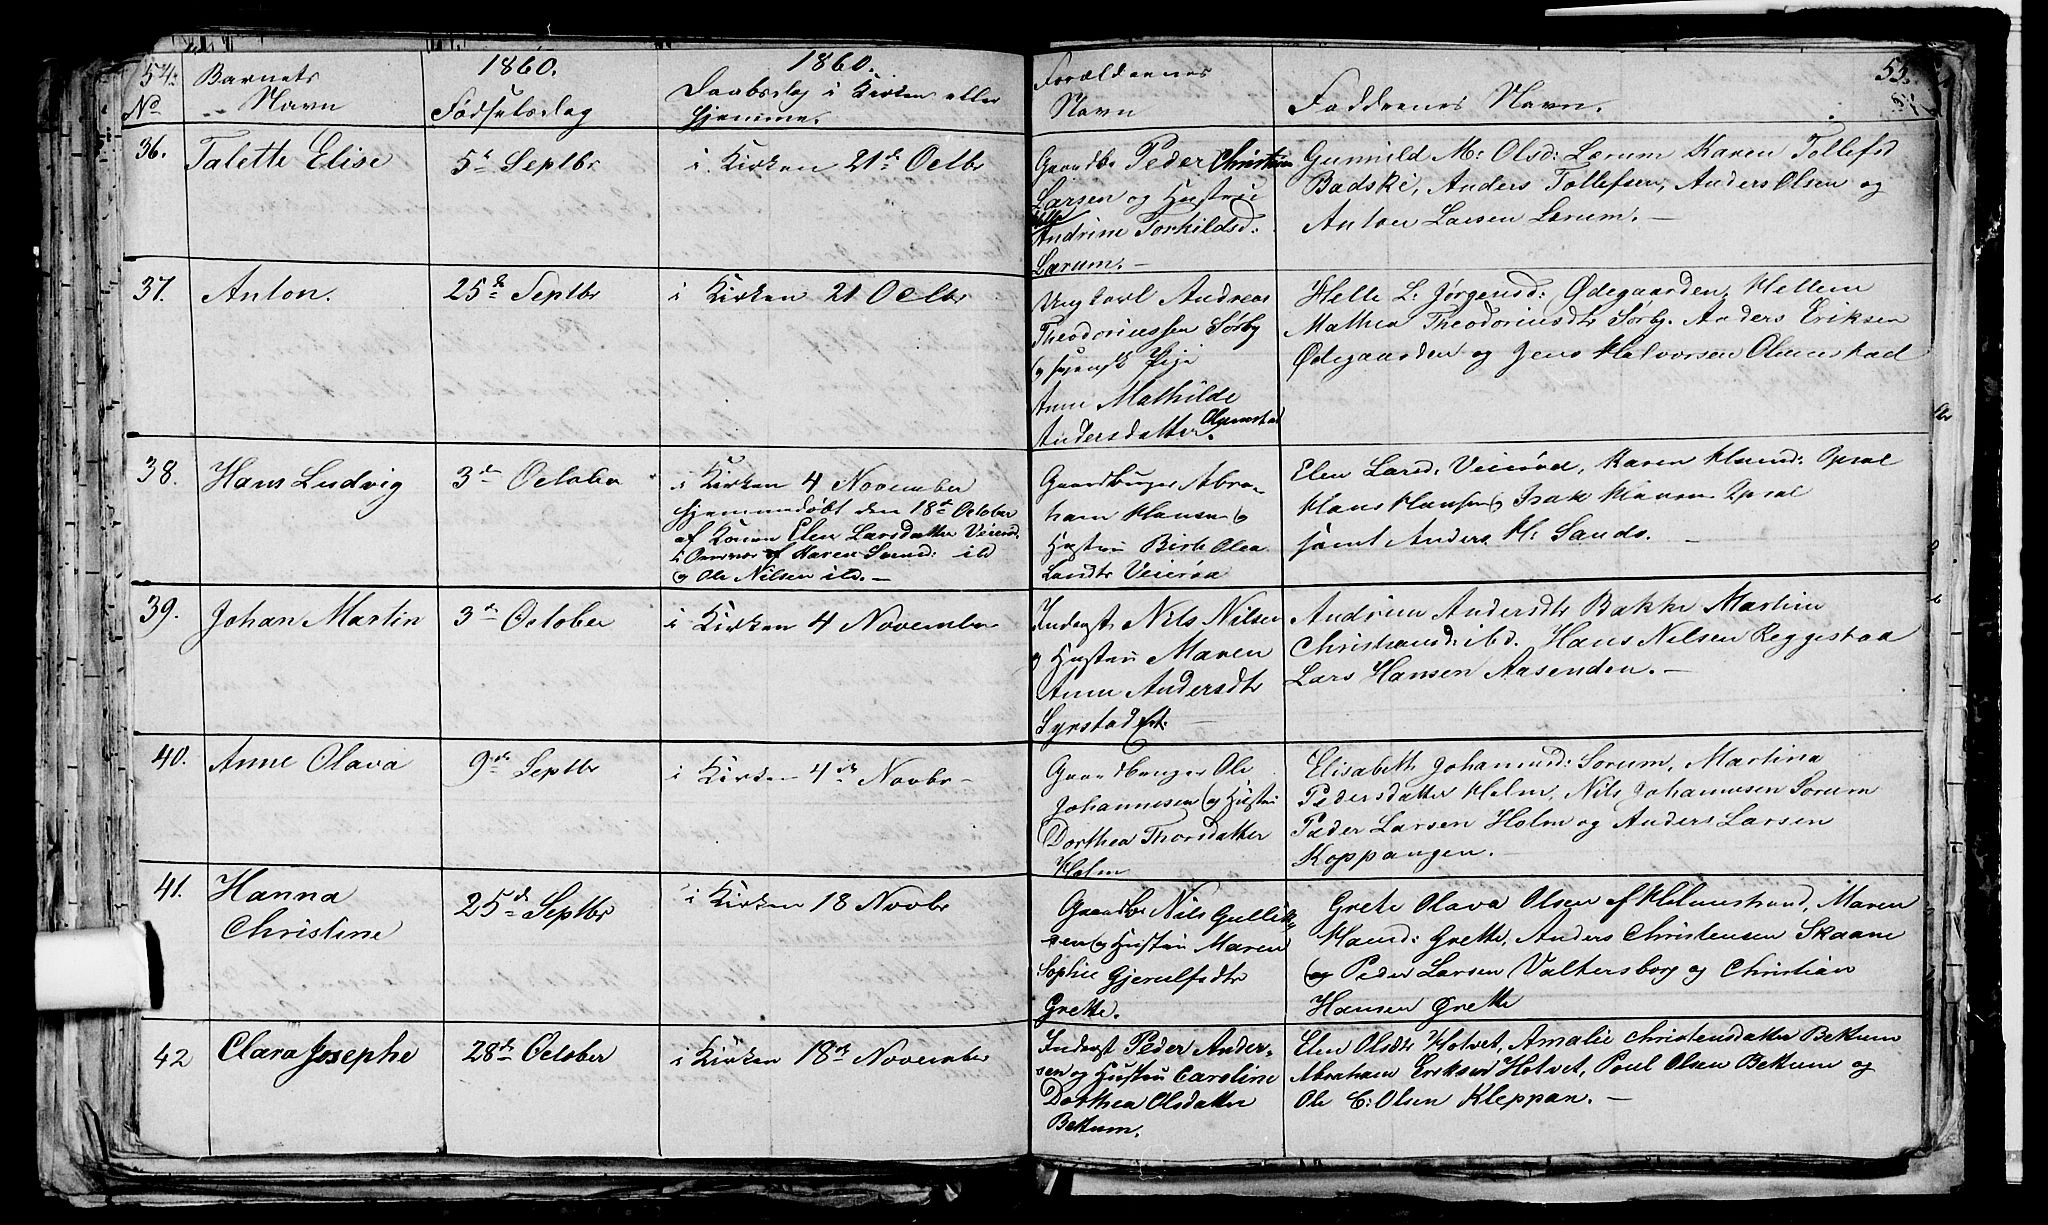 54.
No
Barnets
Navn
1860.
Fødselsdag
1860.
Daabsdag i Kirken eller
Hjemme.
Forældrenes
Navn
Faddrenes Navn.
55.
36.
Talette Elise
5te Septbr
i Kirken 21de Octbr
Gaardbr Peder Christian
Larsen og Hustrue
Andrine Torkildsd:
Lærum.
Gunnild M: Olsd: Lærum Karen Tollefsd
Badske, Anders Tollefsen, Anders Olsen og
Anton Larsen Lærum. —
37.
Anton.
25de Septbr
i Kirken 21 Octbr
Ungkarl Andreas
Theodoriussen Sørby
og Pige
Anne Mathilde
Andersdatter Olumstad
Helle L: Jørgensd: Ødegaarden, Hellem
Mathea Theodoriusdtr Sørby. Anders Eriksen
Ødegaarden og Jens Halvorsen Olumstad
38.
Hans Ludvig
3de October
i Kirken 4 November
hjemmedøbt den 18de October
af Konen Elen Larsdatter
af Karen ibd
og Ole Nilsen ibd. —
Gaardbruger Abra-
ham Hansen og
Hustru Birthe Olea
Elen Larsd: Veierød, Karen Hansd: Opsal
Hans Hansen og Isak Hansen Opsal
samt Anders H: Sands.
39.
Johan Martin
3de October
i Kirken 4 November
Inderst Nils Nilsen
og Hustru Maren
Anne Andersdtr
Syrstad
Andrine Andersdtr Bakke Martine
Christiansd: ibd. Hans Nilsen Reggestad
Lars Hansen Aasenden. —
40.
Anne Olava
9de Septbr
i Kirken 4de Novbr —
Gaardbruger Ole
Johannesen og Hustru
Dorthea Thorsdatter
Holm
Elisabeth Johannesd: Sørum, Martina
Pedersdatter Holm, Nils Johannesen Sørum
Peder Larsen Holm og Anders Larsen
Koppangen. —
41.
Hanna
Christine
25de Septbr
i Kirken 18 Novbr
Gaardbr Nils Gullik-
sen og Hustru Maren
Sophie Gjerulfsdtr
Grette.
Grete Olava Olsen af Holmestrand, Maren
Hansd: Grette, Anders Christensen Skaane
Peder Larsen Valtersborg og Christian
Hansen Grette
42
Clara Josephe
28de October
i Kirken 18de November
Inderst Peder Ander-
sen og Hustru Caroline
Dorthea Olsdatter
Bettum.
Elen Olsdtr Holvet, Amalie Christensdatter Bettum
Abraham Eriksen Holvet, Poul Olsen Bettum og
Ole C: Olsen Kleppan. —